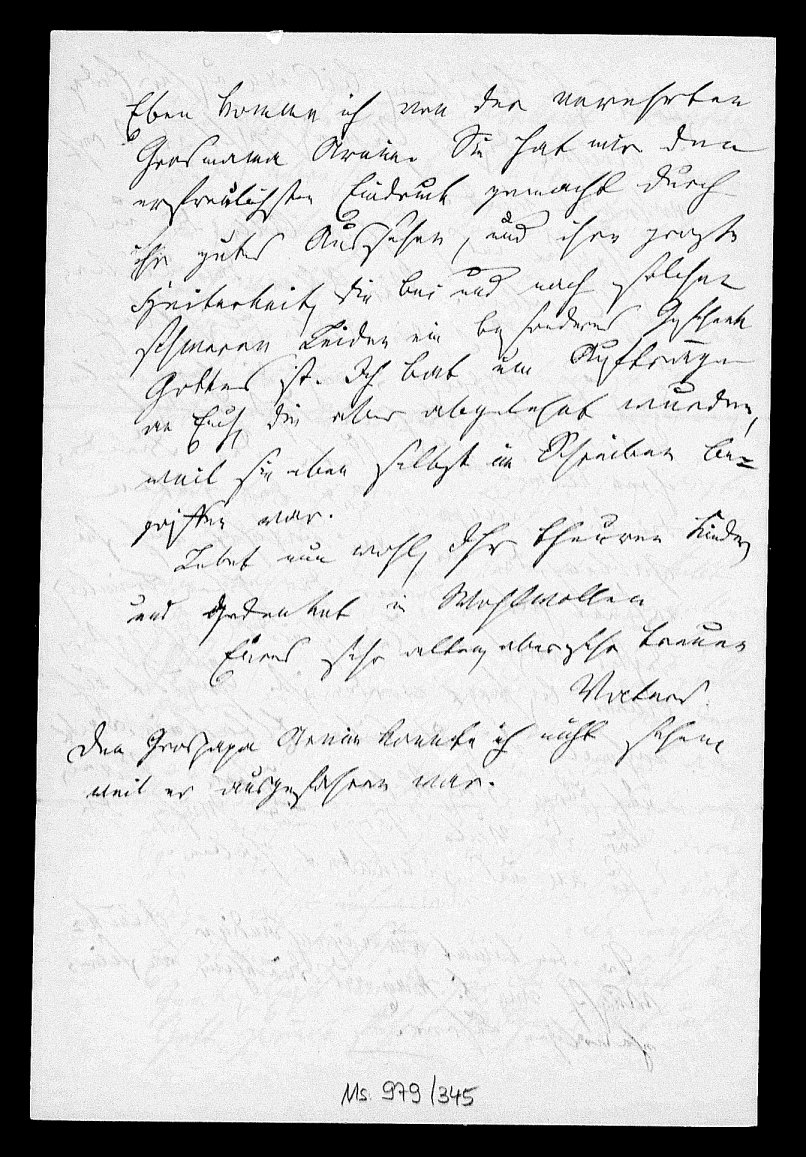 Eben komme ich von der verehrten
Grosmama Arnim. Sie hat mir den
erfreulichsten Eindruck gemacht durch
ihr gutes Aussehen, und ihre große
Heiterkeit, die bei und nach solchen
schweren Leiden ein besonderes Geschenk
Gottes ist. Ich bat um Aufträge
an Euch, die aber abgelehnt wurden,
weil sie eben selbst im Schreiben be=
griffen war.
Lebet nun wohl, Ihr theuren Kinder,
und gedenket in Wohlwollen
Eures sehr alten, aber sehr treuen
Vaters.
Den Grospapa Arnim konnte ich nicht sehen
weil er ausgefahren war.
Ms. 979/345